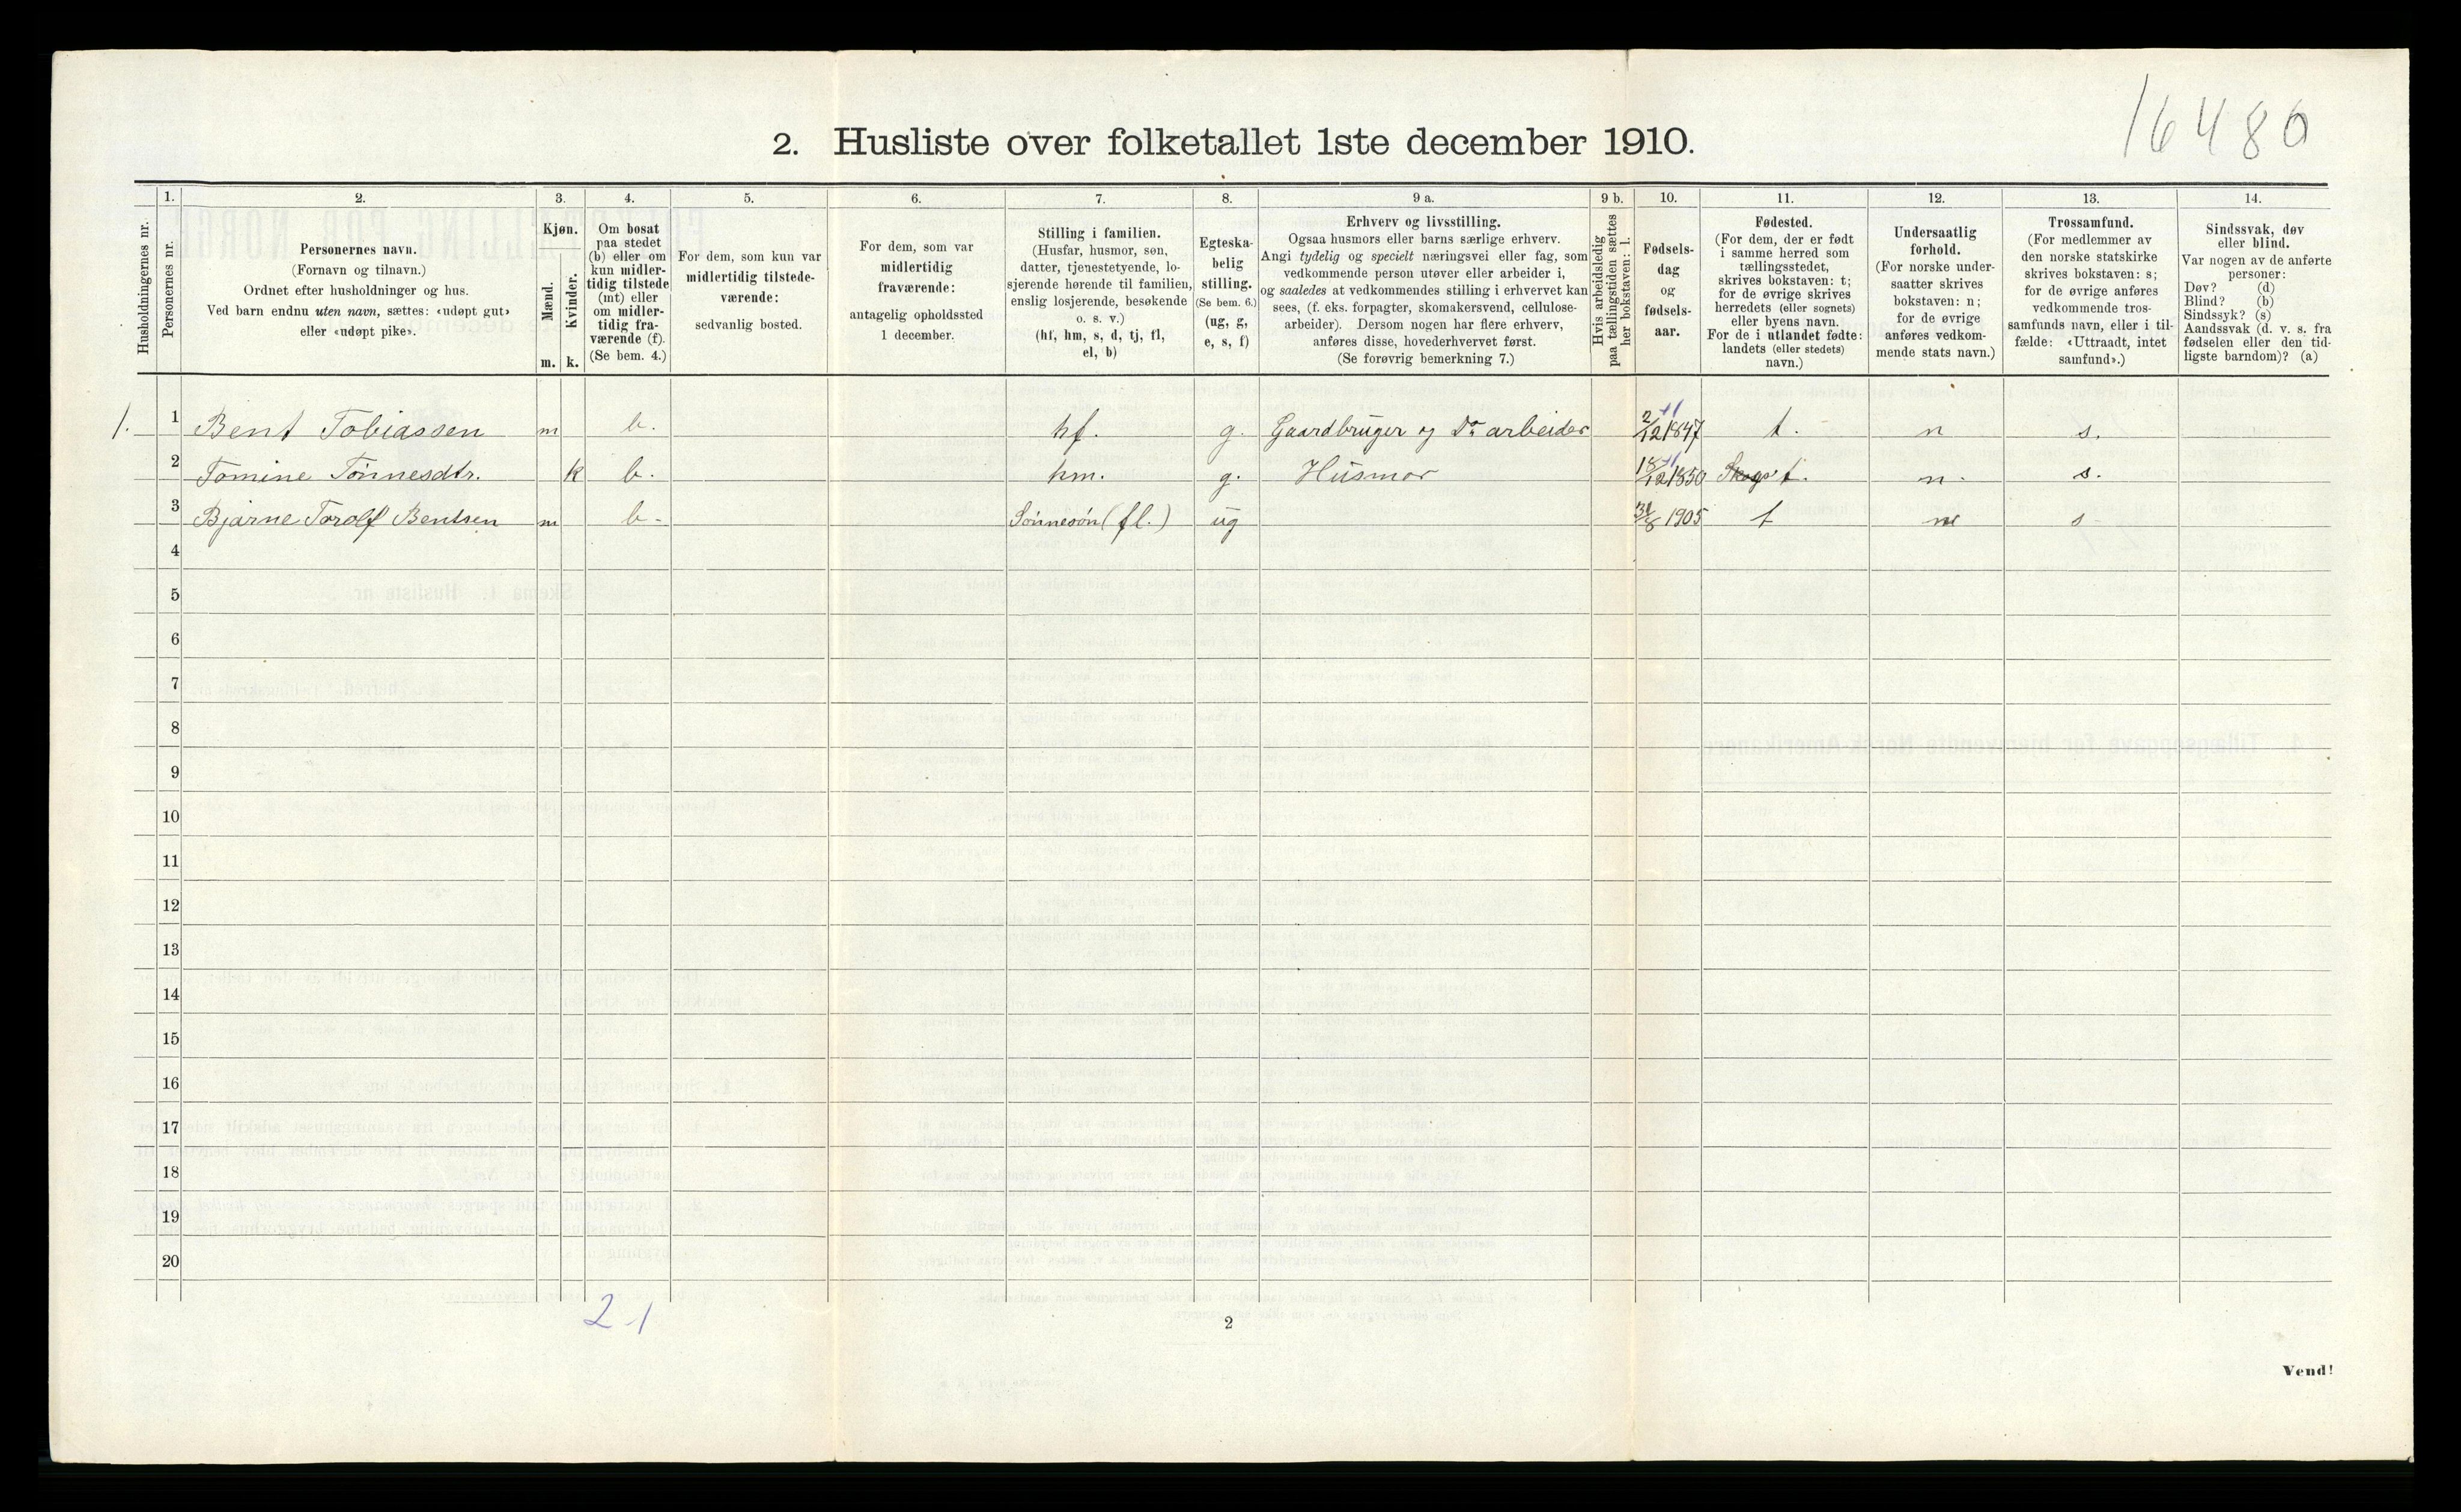 16480
2. Husliste over folketallet 1ste december 1910.
Husholdningernes nr.
1.
Personernes nr.
2.
Personernes navn.
(Fornavn og tilnavn.)
Ordnet efter husholdninger og hus.
Ved barn endnu uten navn, sættes: «udøpt gut»
eller «udøpt pike».
3.
Kjøn.
Mænd.
Kvinder.
m. k.
4.
Om bosat
paa stedet
(b) eller om
kun midler-
tidig tilstede
(mt) eller
om midler-
tidig fra-
værende (f).
(Se bem. 4.)
5.
For dem, som kun var
midlertidig tilstede-
værende:
sedvanlig bosted.
6.
For dem, som var
midlertidig
fraværende:
antagelig opholdssted
1 december.
7.
Stilling i familien.
(Husfar, husmor, søn,
datter, tjenestetyende, lo-
sjerende hørende til familien,
enslig losjerende, besøkende
o. s. v.)
(hf, hm, s, d, tj, fl,
el, b)
8.
Egteska-
belig
stilling.
(Se bem. 6.)
(ug, g,
e, s, f)
9 a.
Erhverv og livsstilling.
Ogsaa husmors eller barns særlige erhverv.
Angi tydelig og specielt næringsvei eller fag, som
vedkommende person utøver eller arbeider i,
og saaledes at vedkommendes stilling i erhvervet kan
sees, (f. eks. forpagter, skomakersvend, cellulose-
arbeider). Dersom nogen har flere erhverv,
anføres disse, hovederhvervet først.
(Se forøvrig bemerkning 7.)
9 b.
Hvis arbeidsledig
paa tællingstiden sættes
her bokstaven: l.
10.
Fødsels-
dag
og
fødsels-
aar.
11.
Fødested.
(For dem, der er født
i samme herred som
tællingsstedet,
skrives bokstaven: t;
for de øvrige skrives
herredets (eller sognets)
eller byens navn.
For de i utlandet fødte:
landets (eller stedets)
navn.)
12.
Undersaatlig
forhold.
(For norske under-
saatter skrives
bokstaven: n;
for de øvrige
anføres vedkom-
mende stats navn.)
13.
Trossamfund.
(For medlemmer av
den norske statskirke
skrives bokstaven: s;
for de øvrige anføres
vedkommende tros-
samfunds navn, eller i til-
fælde: «Uttraadt, intet
samfund».)
14.
Sindssvak, døv
eller blind.
Var nogen av de anførte
personer:
Døv? (d)
Blind? (b)
Sindssyk? (s)
Aandssvak (d. v. s. fra
fødselen eller den tid-
ligste barndom)? (a)
1. 1 Bent Tobiassen m b. hf. g. Gaardbruger og Do arbeider 2/12 1847 t. n s.
2 Tomine Tönnesdtr. k b. hm. g. Husmor 18/12 1850 t. n. s.
3 Bjarne Torolf Bentsen m b- Sönnesön (fl.) ug 1905 t n s-
4
5
6
7
8
9
10
11
12
13
14
15
16
17
18
19
20
2-1
2
Vend!